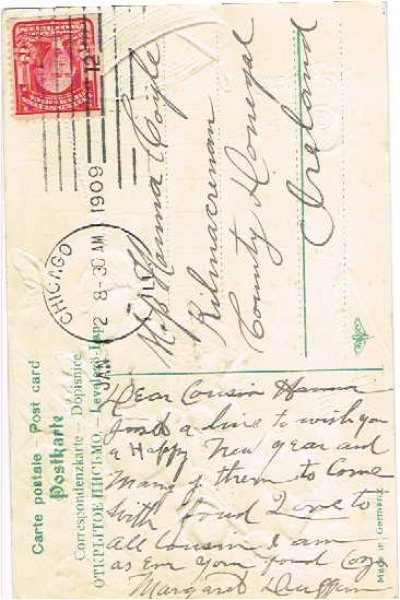 CHICAGO
ILL
JAN 2 8-30 AM 1909
12
Miss Hanna Coyle
Kilmacrenan
County Donegal
Ireland
Carte postale – Post card
Postkarte
Correspondenzkarte – Dopisnice
ОТКРЫТОЕ ПИСЬМО – Levelező-Lap
Dear Cousin Hanna
Just a line to wish you
a Happy New year and
Many of them to come
With fond Love to
all Cousin I am
as Ever your fond Coz
Margaret
Made in Germany